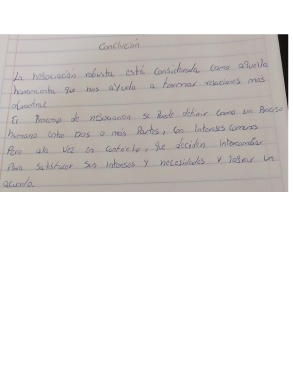 Conclusión
La negociación robusta está considerada como aquella
herramienta que nos ayuda a formar relaciones mas
El Proceso de negociación se Puede definir como un Proceso
humano entre Dos o mas Partes, Con intereses comunes
Pero a la Vez en conflicto, que deciden intercambiar
Para Satisfacer Sus intereses y necesidades y lograr un
acuerdo.